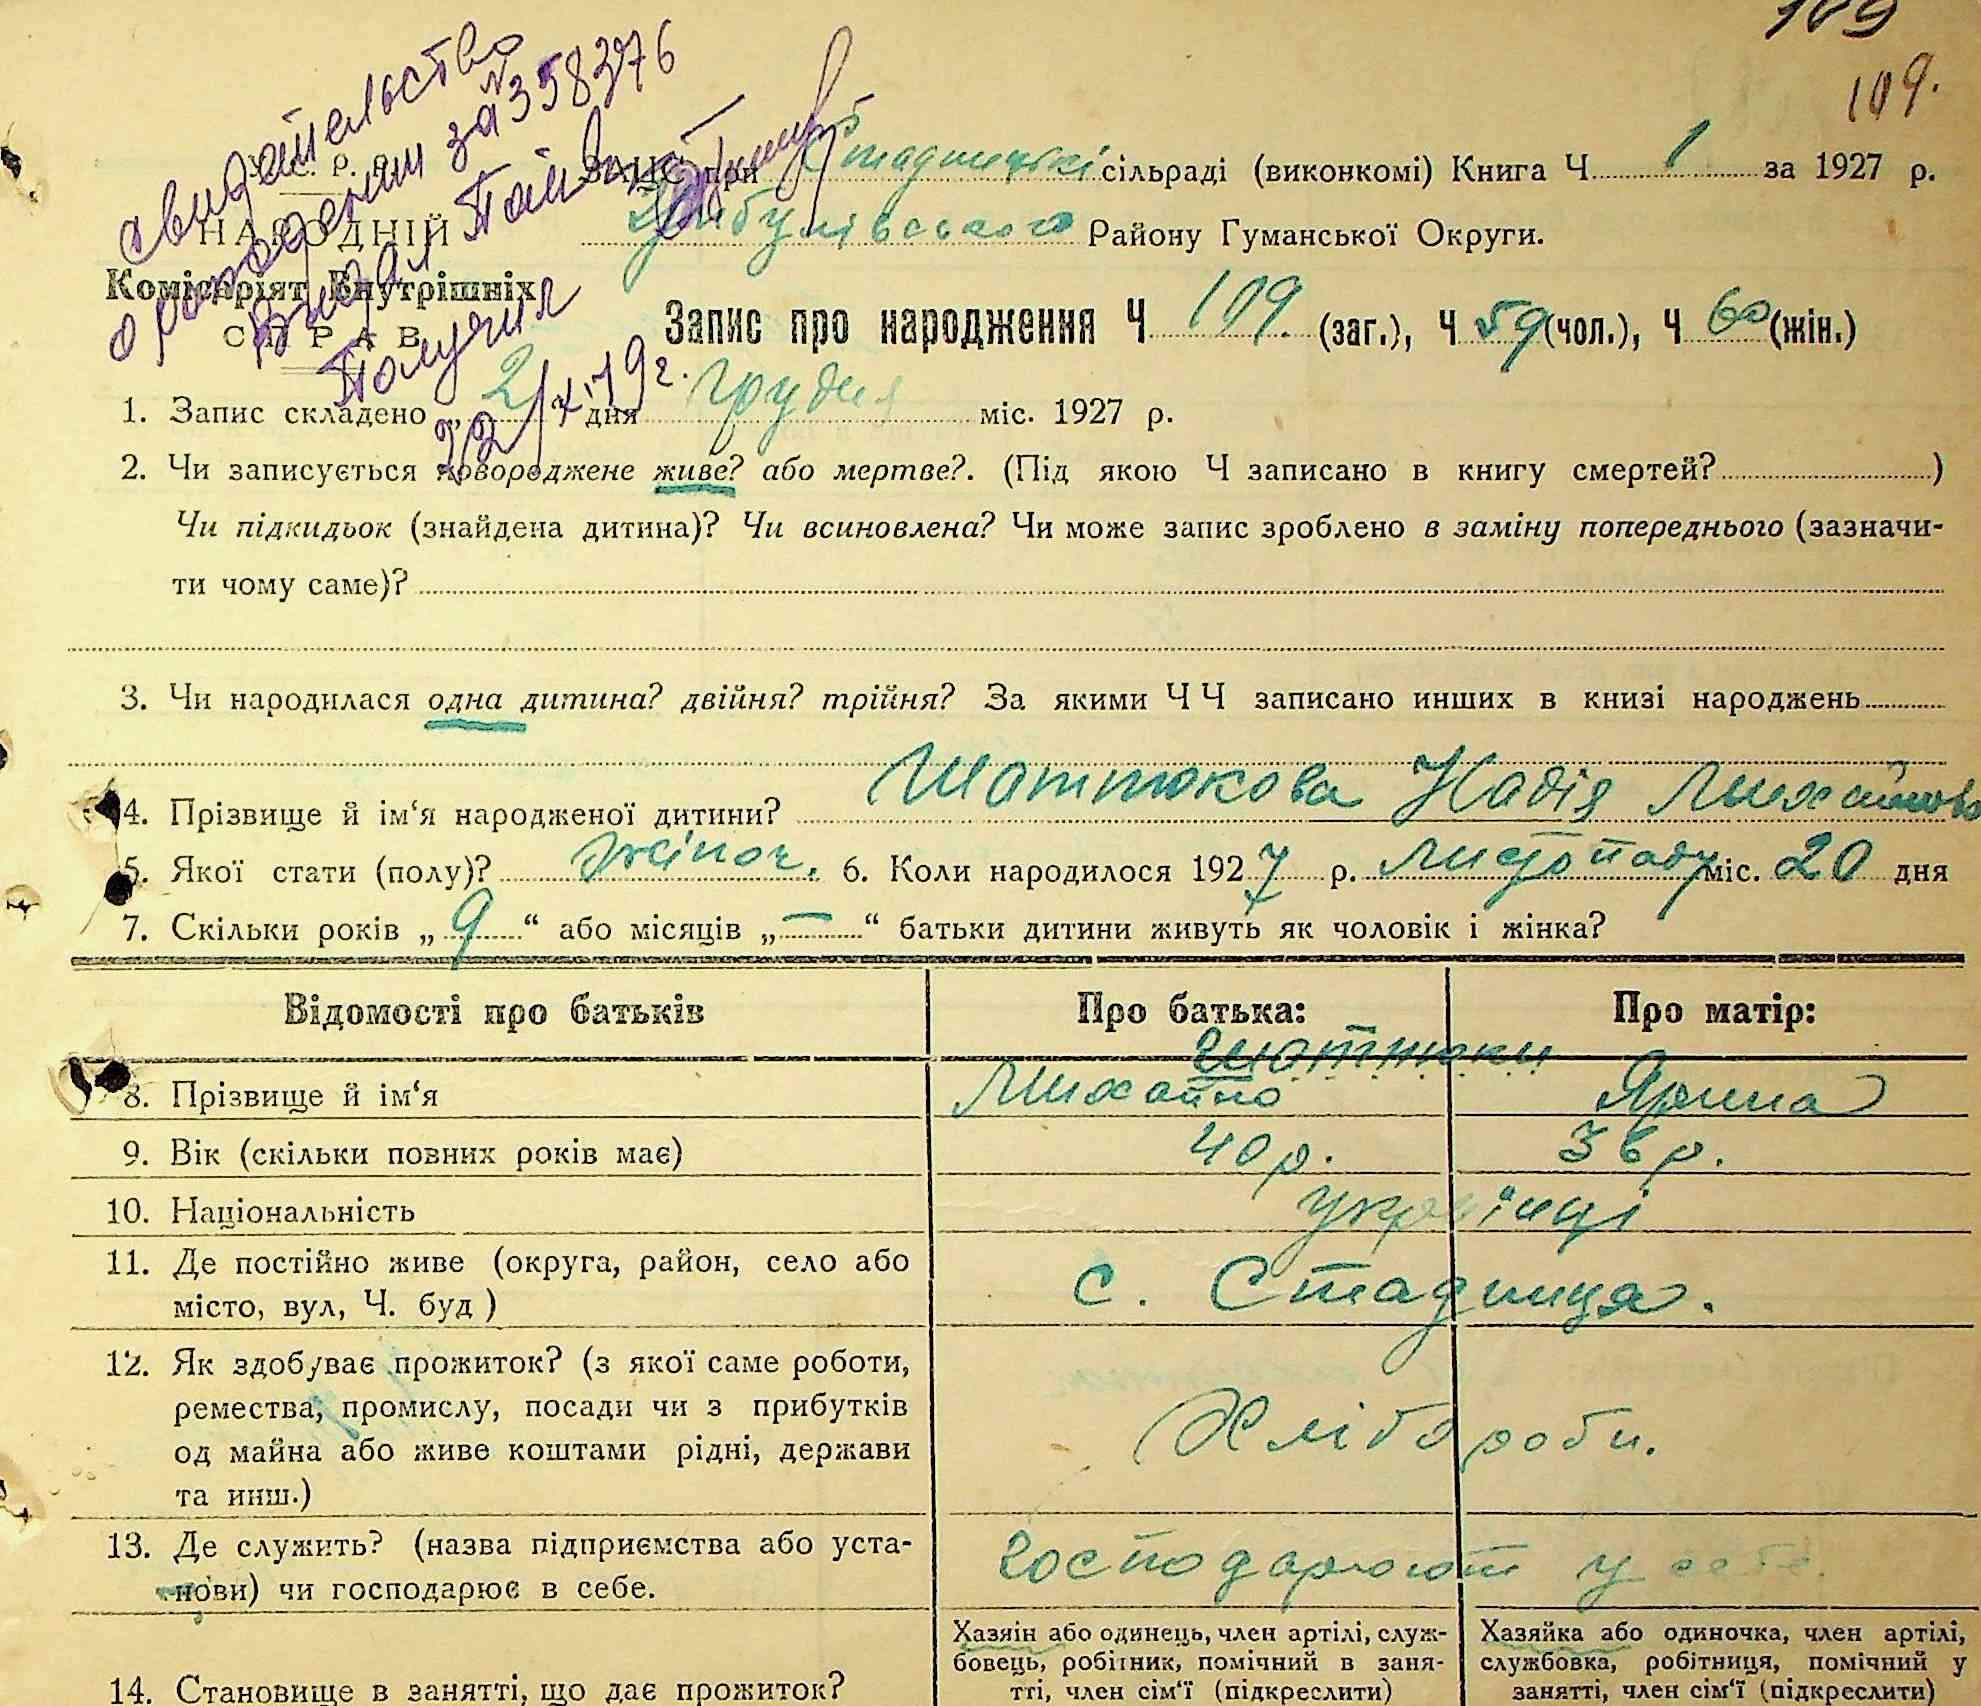 109
109.
свидетельство
о рождении за № 358376
Выдал
Получил
22/XI 79 г.
У. С. Р. Р.
НАРОДНІЙ
Комісаріят Внутрішніх
СПРАВ
ЗАГС при Стадницькі сільраді (виконкомі) Книга Ч 1 за 1927 р.
Цибулівського Району Гуманської Округи.
Запис про народження Ч 109. (заг.), Ч 59 (чол.), Ч 60 (жін.)
1. Запис складено „ 2 “ дня грудня міс. 1927 р.
2. Чи записується новороджене живе? або мертве?. (Під якою Ч записано в книгу смертей? )
Чи підкидьок (знайдена дитина)? Чи всиновлена? Чи може запис зроблено в заміну попереднього (зазначи-
ти чому саме)?
3. Чи народилася одна дитина? двійня? трійня? За якими ЧЧ записано инших в книзі народжень
4. Прізвище й ім‘я народженої дитини? Шатткова Надія Михайлова
5. Якої стати (полу)? жіноч. 6. Коли народилося 1927 р. листопаду міс. 20 дня
7. Скільки років „ 9 “ або місяців „ — “ батьки дитини живуть як чоловік і жінка?
Відомості про батьків Про батька: Про матір:
8. Прізвище й ім‘я Михайло Ярина
9. Вік (скільки повних років має) 40 р. 36 р.
10. Національність українці
11. Де постійно живе (округа, район, село або
місто, вул, Ч. буд ) с. Стадниця.
12. Як здобуває прожиток? (з якої саме роботи,
ремества, промислу, посади чи з прибутків
од майна або живе коштами рідні, держави
та инш.) Хлібороби.
13. Де служить? (назва підприємства або уста-
нови) чи господарює в себе. господарюют у себе.
14. Становище в занятті, що дає прожиток?
Хазяін або одинець, член артілі, служ-
бовець, робітник, помічний в заня-
тті, член сім‘ї (підкреслити)
Хазяйка або одиночка, член артілі,
службовка, робітниця, помічний у
занятті, член сім‘ї (підкреслити)